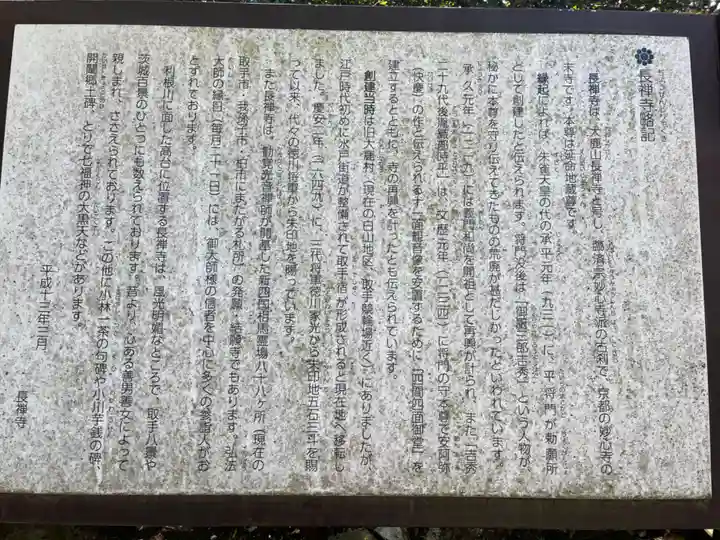 長禅寺略記
長禅寺は、大鹿山長禅寺と号し、臨済宗妙心寺派の古刹で、京都の妙心寺の
末寺です。本尊は延命地蔵尊です。
縁起によれば、朱雀天皇の代の承平元年(九三一)に、平将門が勅願所
として創建したと伝えられます。将門没後は、「御厨三郎吉秀」という人物が
秘かに本尊を守り伝えてきたものの荒廃が甚だしかったといわれています。
承久元年(一二一九)には義門和尚を開祖として再興が計られ、また「吉秀
二十九代後胤織部時平」は、文暦元年(一二三四)に将門の守本尊で安阿弥
(快慶)の作と伝えられる十一面観音像を安置するために「四間四面御堂」を
建立するとともに、寺の再興を計ったとも伝えられています。
創建当時は旧大鹿村(現在の白山地区、取手競輪場近く)にありましたが、
江戸時代初めに水戸街道が整備されて取手宿が形成されると現在地へ移転し
ました。慶安二年(一六四九)に、三代将軍徳川家光から朱印地五石三斗を賜
って以来、代々の徳川将軍から朱印地を賜っています。
また長禅寺は、観覚光音禅師が開基した新四国相馬霊場八十八ヶ所(現在の
取手市・我孫子市・柏市にまたがる札所)の発願・結願寺でもあります。弘法
大師の縁日(毎月二十一日)には、御大師様の信者を中心に多くの参詣人がお
とずれております。
利根川に面した高台に位置する長禅寺は、風光明媚なところで、取手八景や
茨城百景のひとつにも数えられております。昔より、心ある善男善女によって
親しまれ、ささえられております。この他に小林一茶の句碑や小川芋銭の碑、
開闡郷土碑、とりで七福神の大黒天などがあります。
平成十三年三月
長禅寺